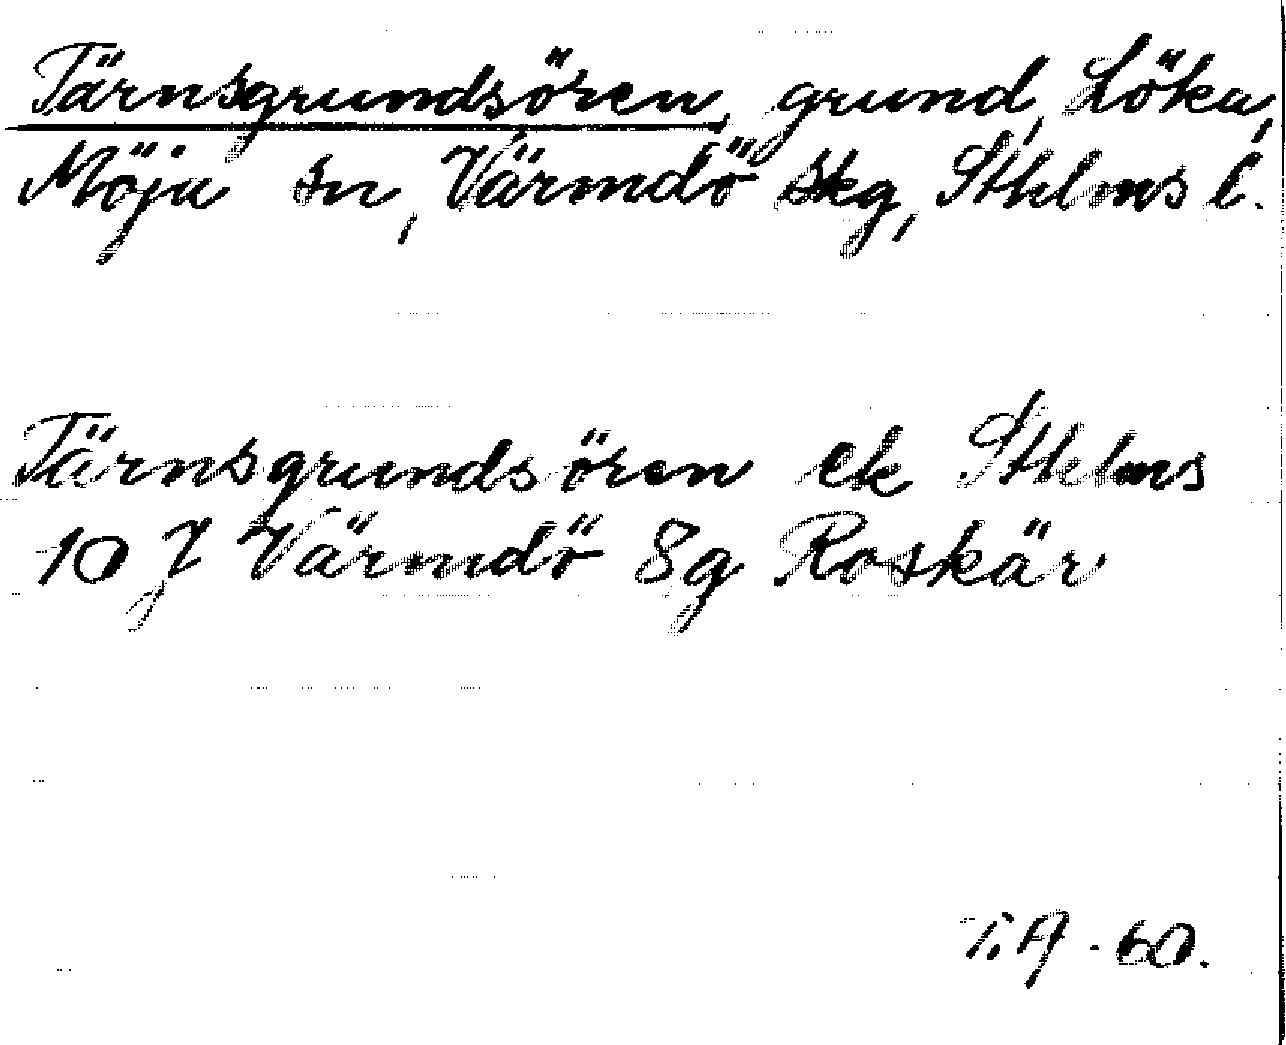 Tärnsgrundsören, grund, Löka,
Möja sn, Värmdö skg, Sthlms l.
Tärnsgrundsören ek Sthlms
10 J Värmdö 8g Roskär
T.A -60.